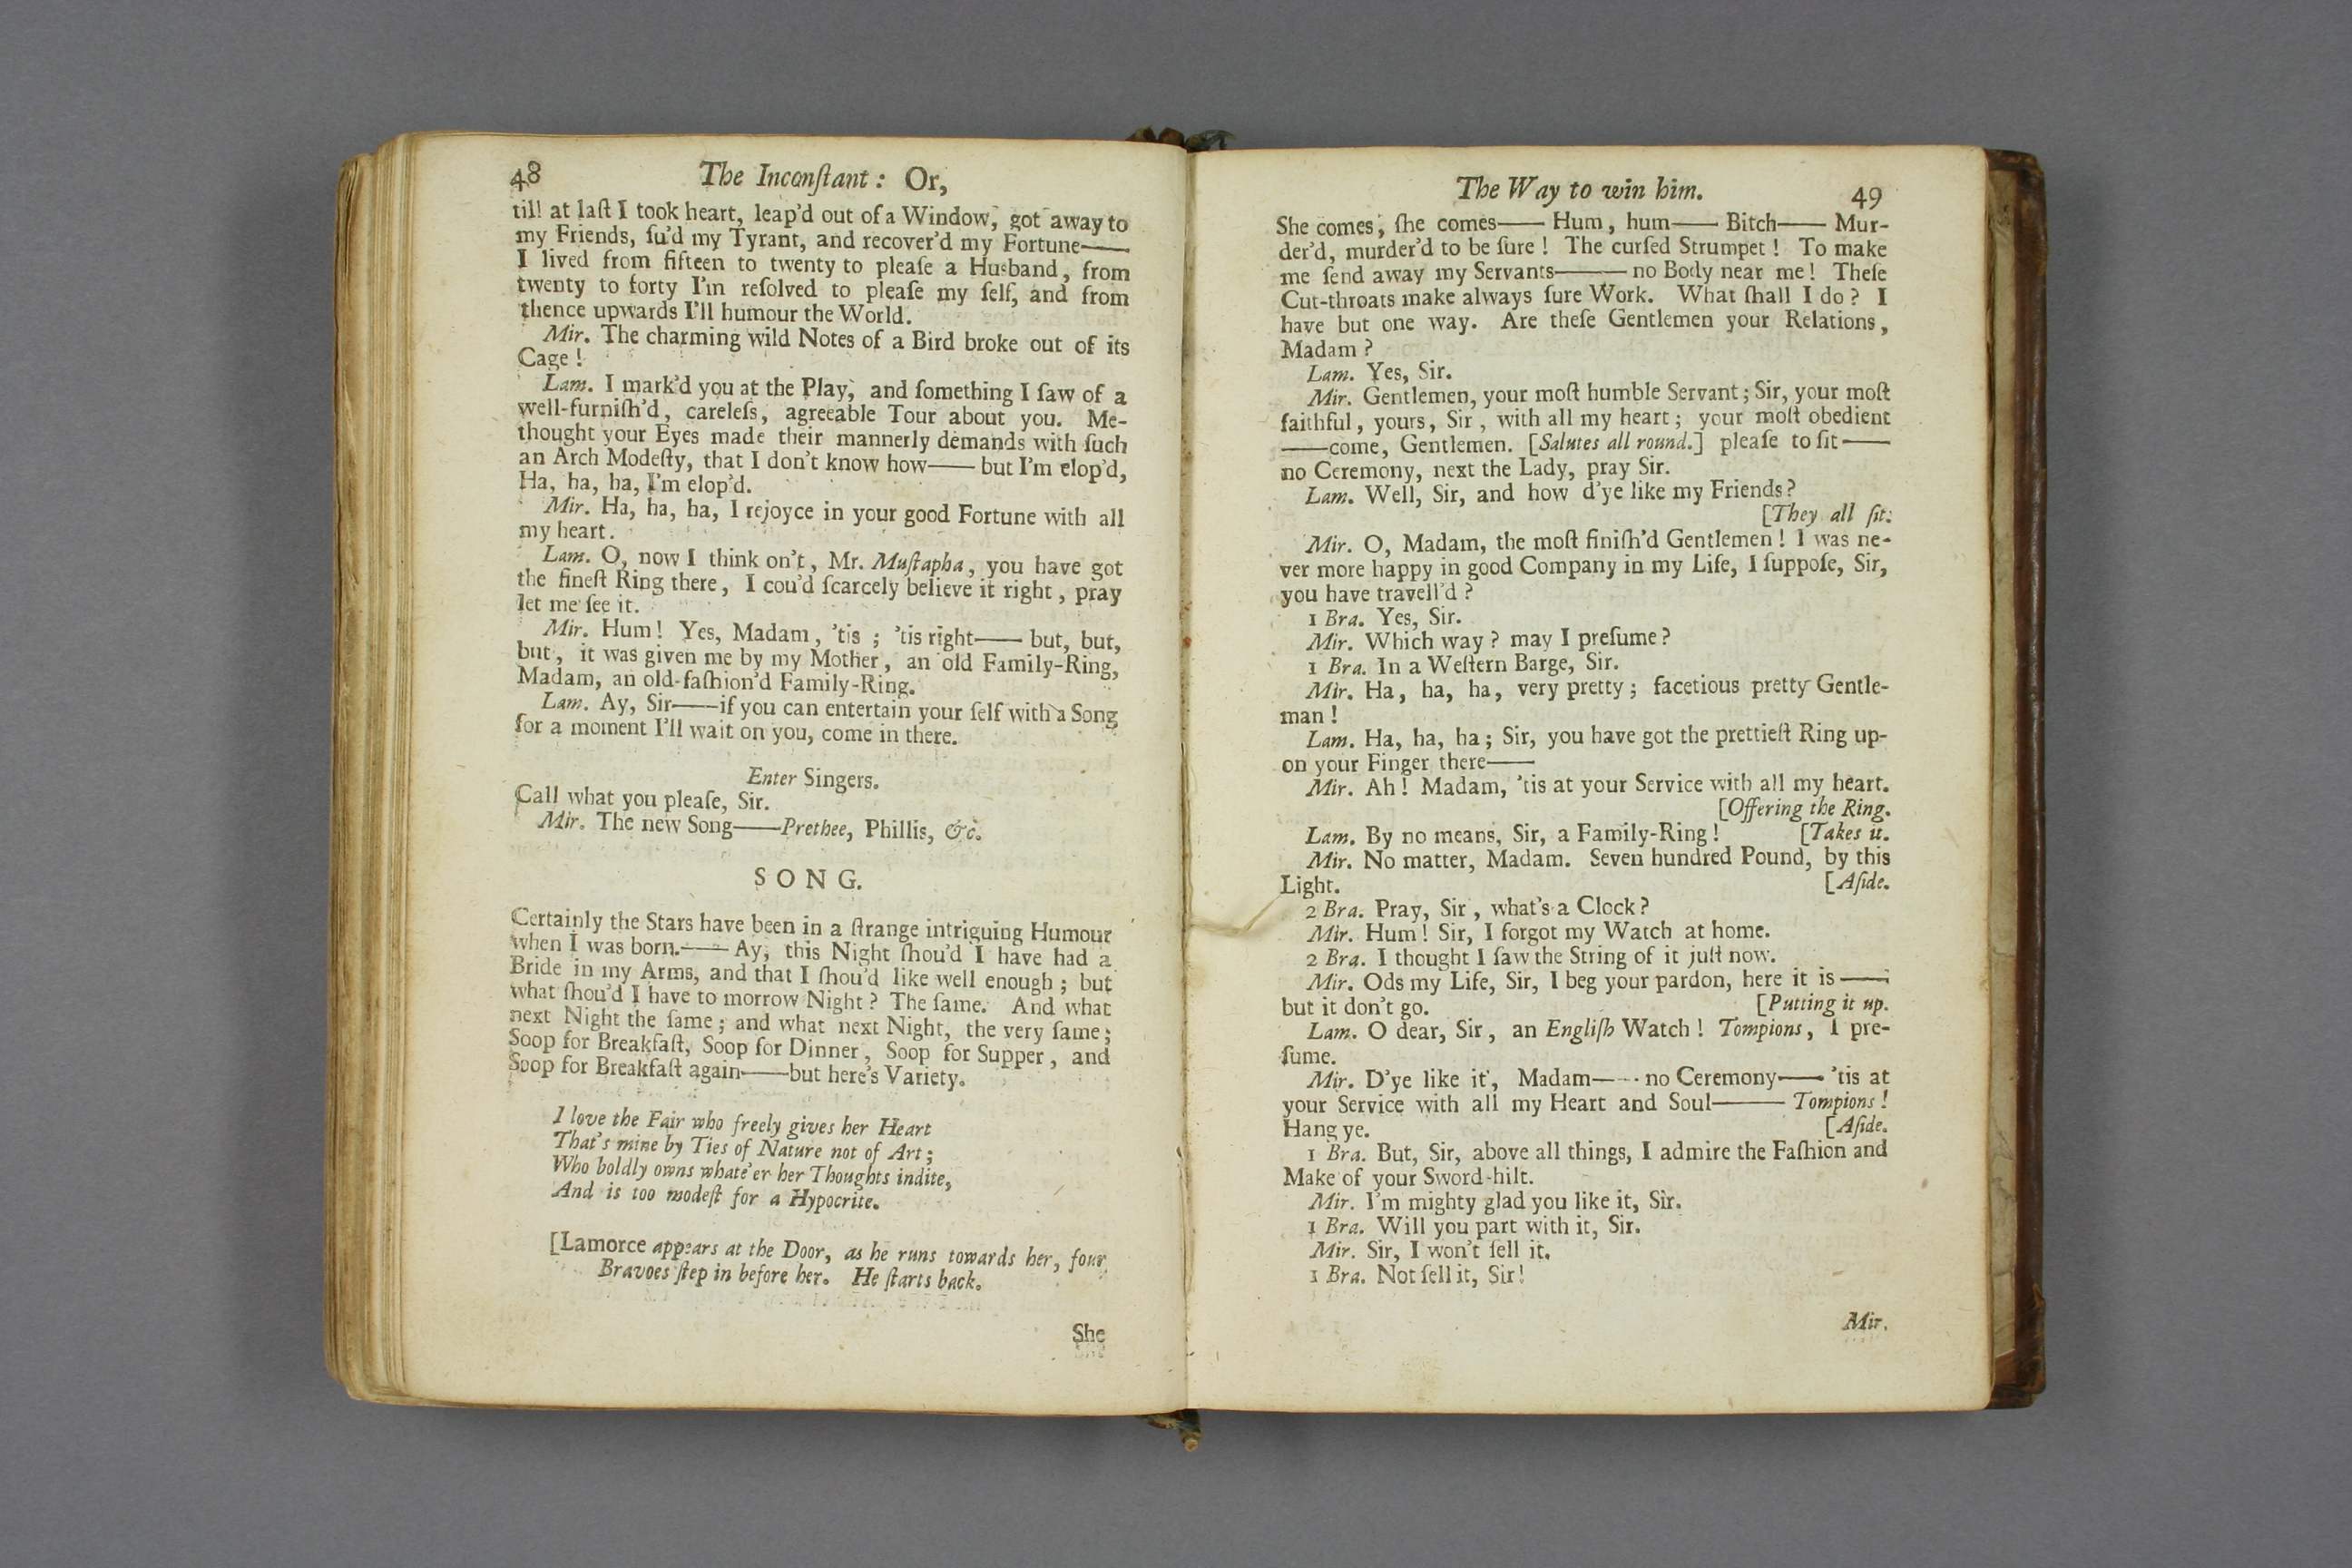 48 The Inconſtant: Or,
till at laſt I took heart, leap'd out of a Window, got away to
my Friends, ſu'd my Tyrant, and recover'd my Fortune——
I lived from fifteen to twenty to pleaſe a Husband, from
twenty to forty I'm reſolved to pleaſe my ſelf, and from
thence upwards I'll humour the World.
Mir. The charming wild Notes of a Bird broke out of its
Cage!
Lam. I mark'd you at the Play, and ſomething I ſaw of a
well-furniſh'd, careleſs, agreeable Tour about you. Me-
thought your Eyes made their mannerly demands with ſuch
an Arch Modeſty, that I don't know how—— but I'm elop'd,
Ha, ha, ha, I'm elop'd.
Mir. Ha, ha, ha, I rejoyce in your good Fortune with all
my heart.
Lam. O, now I think on't, Mr. Muſtapha, you have got
the fineſt Ring there, I cou'd ſcarcely believe it right, pray
let me ſee it.
Mir. Hum! Yes, Madam, 'tis; 'tis right—— but, but,
but, it was given me by my Mother, an old Family-Ring,
Madam, an old-faſhion'd Family-Ring.
Lam. Ay, Sir——if you can entertain your ſelf with a Song
for a moment I'll wait on you, come in there.
Enter Singers.
Call what you pleaſe, Sir.
Mir. The new Song——Prethee, Phillis, &c.
SONG.
Certainly the Stars have been in a ſtrange intriguing Humour
when I was born.—— Ay, this Night ſhou'd I have had a
Bride in my Arms, and that I ſhou'd like well enough; but
what ſhou'd I have to morrow Night? The ſame. And what
next Night the ſame; and what next Night, the very ſame;
Soop for Breakfaſt, Soop for Dinner, Soop for Supper, and
Soop for Breakfaſt again——but here's Variety.
I love the Fair who freely gives her Heart
That's mine by Ties of Nature not of Art;
Who boldly owns whate'er her Thoughts indite,
And is too modeſt for a Hypocrite.
[Lamorce appears at the Door, as he runs towards her, four
Bravoes ſtep in before her. He ſtarts back.
She
The Way to win him. 49
She comes, ſhe comes—— Hum, hum—— Bitch—— Mur-
der'd, murder'd to be ſure! The curſed Strumpet! To make
me ſend away my Servants——— no Body near me! Theſe
Cut-throats make always ſure Work. What ſhall I do? I
have but one way. Are theſe Gentlemen your Relations,
Madam?
Lam. Yes, Sir.
Mir. Gentlemen, your moſt humble Servant; Sir, your moſt
faithful, yours, Sir, with all my heart; your moſt obedient
——come, Gentlemen. [Salutes all round.] pleaſe to ſit——
no Ceremony, next the Lady, pray Sir.
Lam. Well, Sir, and how d'ye like my Friends?
[They all ſit.
Mir. O, Madam, the moſt finiſh'd Gentlemen! I was ne-
ver more happy in good Company in my Life, I ſuppoſe, Sir,
you have travell'd?
1 Bra. Yes, Sir.
Mir. Which way? may I preſume?
1 Bra. In a Weſtern Barge, Sir.
Mir. Ha, ha, ha, very pretty; facetious pretty Gentle-
man!
Lam. Ha, ha, ha; Sir, you have got the prettieſt Ring up-
on your Finger there——
Mir. Ah! Madam, 'tis at your Service with all my heart.
[Offering the Ring.
Lam. By no means, Sir, a Family-Ring! [Takes it.
Mir. No matter, Madam. Seven hundred Pound, by this
Light. [Aſide.
2 Bra. Pray, Sir, what's a Clock?
Mir. Hum! Sir, I forgot my Watch at home.
2 Bra. I thought I ſaw the String of it juſt now.
Mir. Ods my Life, Sir, I beg your pardon, here it is——
but it don't go. [Putting it up.
Lam. O dear, Sir, an Engliſh Watch! Tompions, I pre-
ſume.
Mir. D'ye like it, Madam—— no Ceremony—— 'tis at
your Service with all my Heart and Soul——— Tompions!
Hang ye. [Aſide.
1 Bra. But, Sir, above all things, I admire the Faſhion and
Make of your Sword-hilt.
Mir. I'm mighty glad you like it, Sir.
1 Bra. Will you part with it, Sir.
Mir. Sir, I won't ſell it.
1 Bra. Not ſell it, Sir!
Mir.